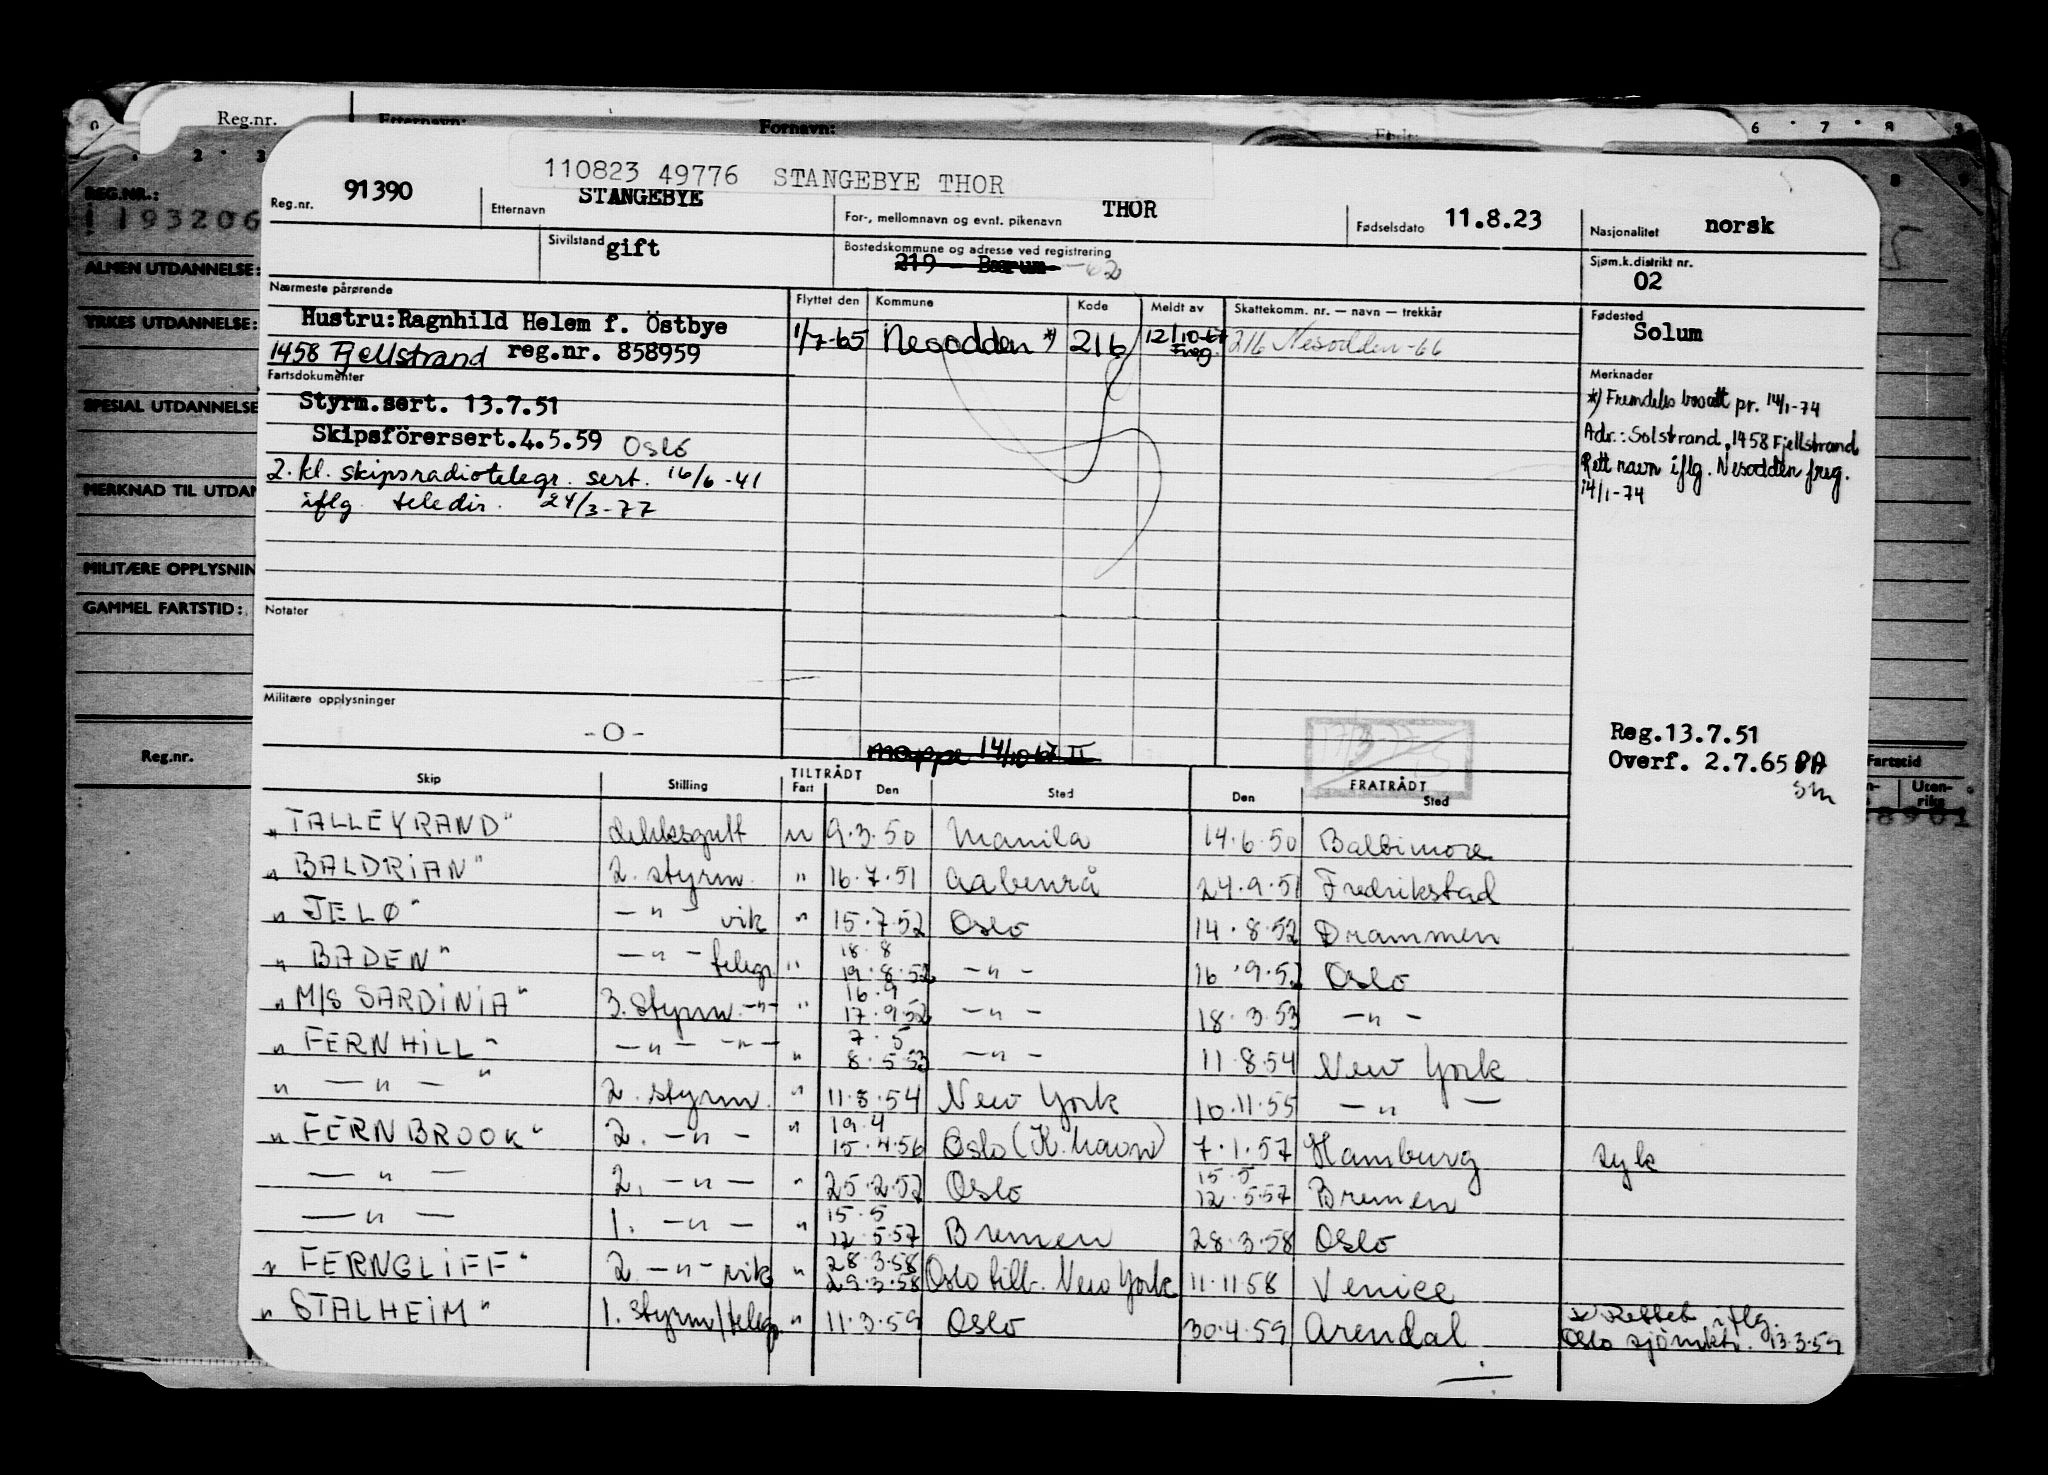 Reg.nr. Etternavn: Fornavn:
2 3 6 7 8 9
REG.NR.:
1193206
ALMEN UTDANNELSE:
YRKES UTDANNELSE:
SPESIAL UTDANNELSE
MERKNAD TIL UTDAN
MILITÆRE OPPLYSNIN
GAMMEL FARTSTID:
Reg.nr.
Fartstid
Uten-
riks
110823 49776 STANGEBYE THOR
Reg.nr. 91390 Etternavn STANGEBYE For-, mellomnavn og evnt. pikenavn THOR Fødselsdato 11.8.23 Nasjonalitet norsk
Sivilstand gift Bostedskommune og adresse ved registrering 219 - Bærum - 62 Sjøm.k.distrikt nr. 02
Nærmeste pårørende Flyttet den Kommune Kode Meldt av Skattekomm. nr. — navn — trekkår Fødested
Hustru:Ragnhild Helem f. Östbye 1/7-65 Nesodden *) 216 12/10-67 Freg. 216 Nesodden-66 Solum
1458 Fjellstrand reg.nr. 858959
Fartsdokumenter
Styrm.sert. 13.7.51
Skipsförersert.4.5.59 Oslo
2. kl. skipsradiotelegr. sert. 16/6-41
iflg. teledir. 24/3-77
Merknader
*) Fremdeles bosatt pr. 14/1-74
Adr.: Solstrand, 1458 Fjellstrand
Rett navn iflg. Nesodden freg.
14/1-74
Notater
Militære opplysninger
-0-
mappe 14/10-67 II
Reg.13.7.51
Overf. 2.7.65 PA
Sm
Skip Stilling TILTRÅDT Fart Den Sted FRATRÅDT Den Sted
" TALLEYRAND" dekksgutt u 9.3.50 Manila 14.6.50 Baltimore
" BALDRIAN" 2. styrm. " 16.7.51 Aabenrå 24.9.51 Fredrikstad
" JELØ" —"— vik " 15.7.52 Oslo 14.8.52 Drammen
" BADEN" —"— telegr. " 18.8 19.8.52 —"— 16.9.52 Oslo
" M/S SARDINIA" 3. styrm. —"— " 16.9 17.9.52 —"— 18.3.53 —"—
" FERNHILL" —"— —"— " 7.5 8.5.53 —"— 11.8.54 New York
" —"— " 2. styrm. " 11.8.54 New York 10.11.55 —"—
" FERNBROOK" 2. —"— " 19.4 15.4.56 Oslo (K.havn) 7.1.57 Hamburg syk
—"— 2. —"— " 25.2.57 Oslo 15.5 12.5.57 Bremen
—"— 1. —"— " 15.5 12.5.57 Bremen 28.3.58 Oslo
" FERNGLIFF" 2. —"— vik " 28.3.58 29.3.58 Oslo tilt. New York 11.11.58 Venice
" STALHEIM" 1. styrm/telegr. " 11.3.59 Oslo 30.4.59 Arendal * Rettet iflg.
Oslo sjömktr. 13.3.59